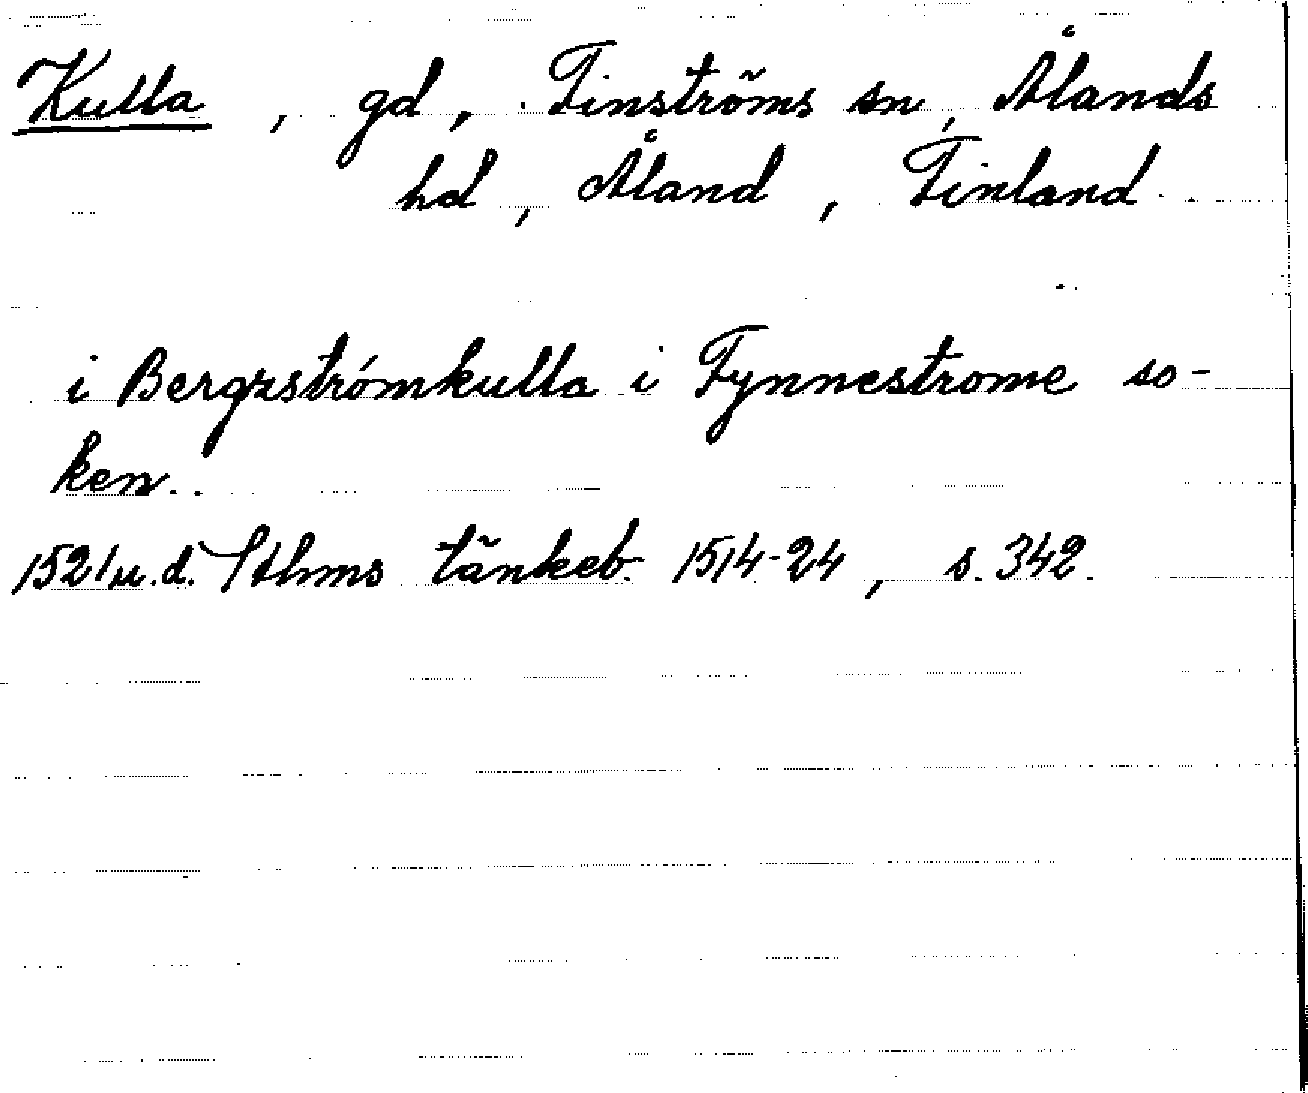 Kulla, gd, Finströms sn, Ålands
hd, Åland, Finland
i Bergxströmkulla i Fynnestrome so-
ken.
1521 u.d. Sthms tänkeb. 1514-24, s. 342.